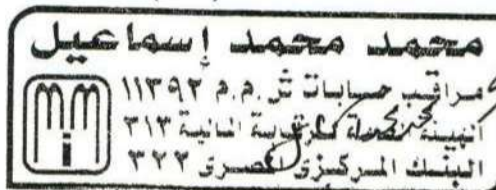 محمد محمد إسماعيل
مراقب حسابات ش.م.م ١١٣٩٢
الهيئة العامة للرقابة المالية ٣١٣
البنك المركزى المصرى ٣٢٢
MiM